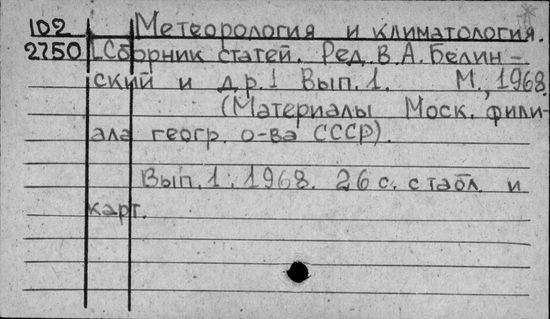 102 Метеорология и климатология.
2750 [Сборник статей. Ред. В.А. Белин-
ский и др.] Вып.1. М., 1968.
(Материалы Моск. фили-
ала геогр. о-ва СССР).
Вып.1. 1968. 26 с. с табл. и
карт.